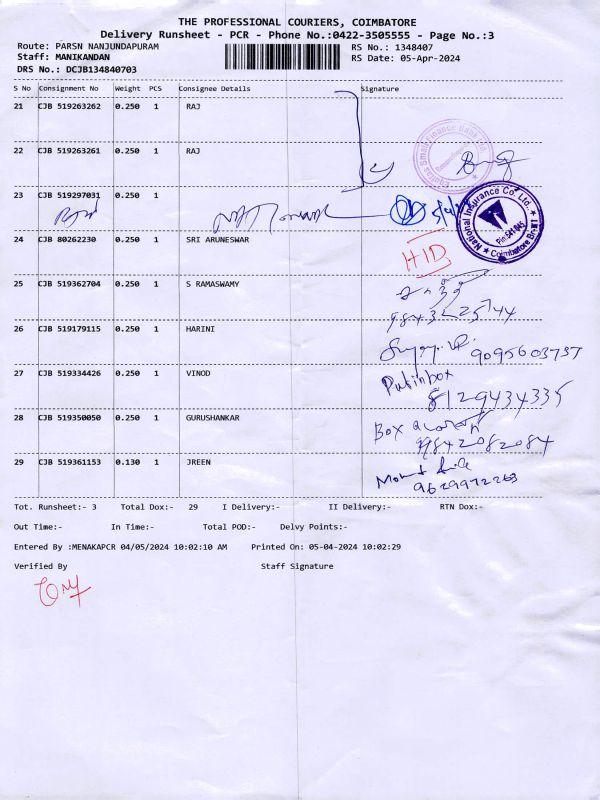 THE PROFESSIONAL COURIERS, COIMBATORE
Delivery Runsheet - PCR - Phone No.:0422-3505555 - Page No.:3
Route: PARSN NANJUNDAPURAM
RS No.: 1348407
Staff: MANIKANDAN
RS Date: 05-Apr-2024
DRS No.: DCJB134840703
S No Consignment No Weight PCS Consignee Details Signature
21 CJB 519263262 0.250 1 RAJ
22 CJB 519263261 0.250 1 RAJ
Equitas Small Finance Bank Ltd.
23 CJB 519297031 0.250 1
National Insurance Co. Ltd.,
Pin:641 045
Coimbatore
24 CJB 80262230 0.250 1 SRI ARUNESWAR
HID
25 CJB 519362704 0.250 1 S RAMASWAMY
26 CJB 519179115 0.250 1 HARINI
9095603737
27 CJB 519334426 0.250 1 VINOD
Put in box
8129434335
28 CJB 519350050 0.250 1 GURUSHANKAR
Box
9842082084
29 CJB 519361153 0.130 1 JREEN
9629972263
Tot. Runsheet:- 3 Total Dox:- 29 I Delivery:- II Delivery:- RTN Dox:-
Out Time:- In Time:- Total POD:- Delvy Points:-
Entered By :MENAKAPCR 04/05/2024 10:02:10 AM Printed On: 05-04-2024 10:02:29
Verified By Staff Signature